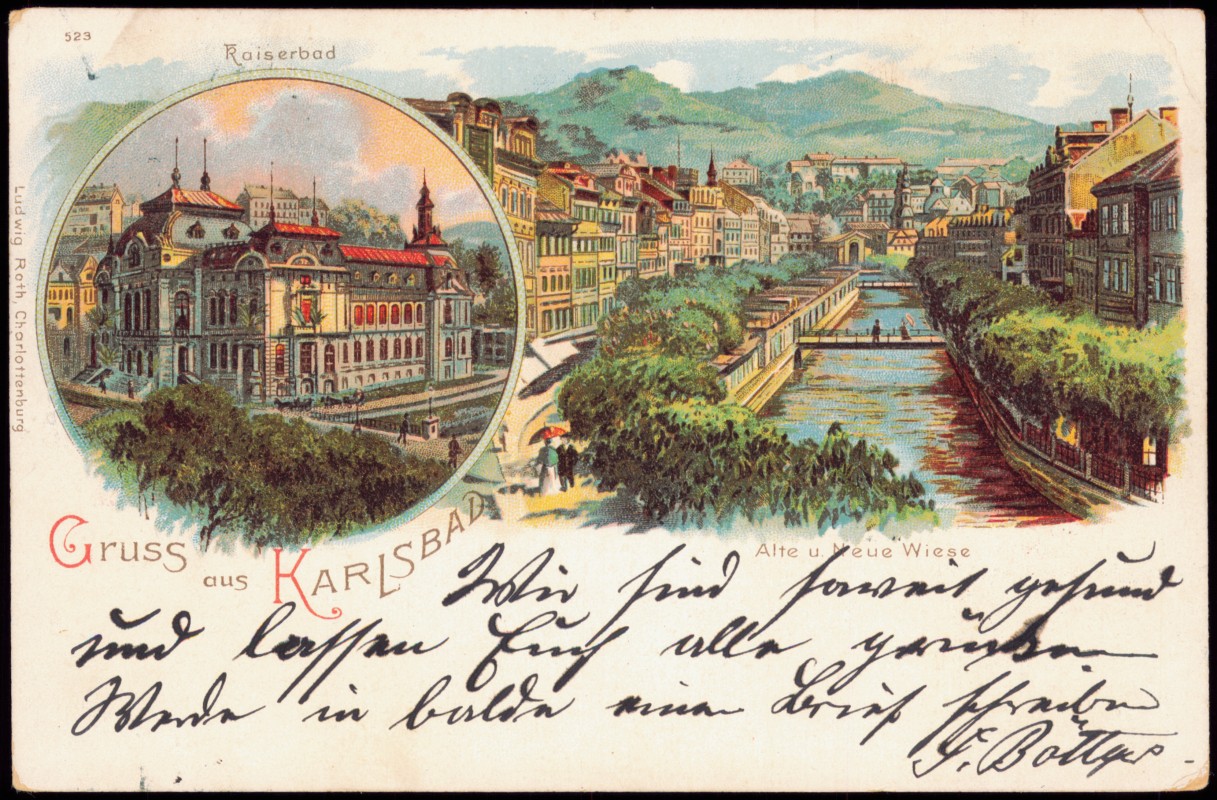 523
Kaiserbad
Ludwig Roth, Charlottenburg
Alte u. Neue Wiese
Gruss aus KARLSBAD
Wir sind soweit gesund
und lassen Euch alle grüßen
Werde in balde einen Brief schreiben
Böttger